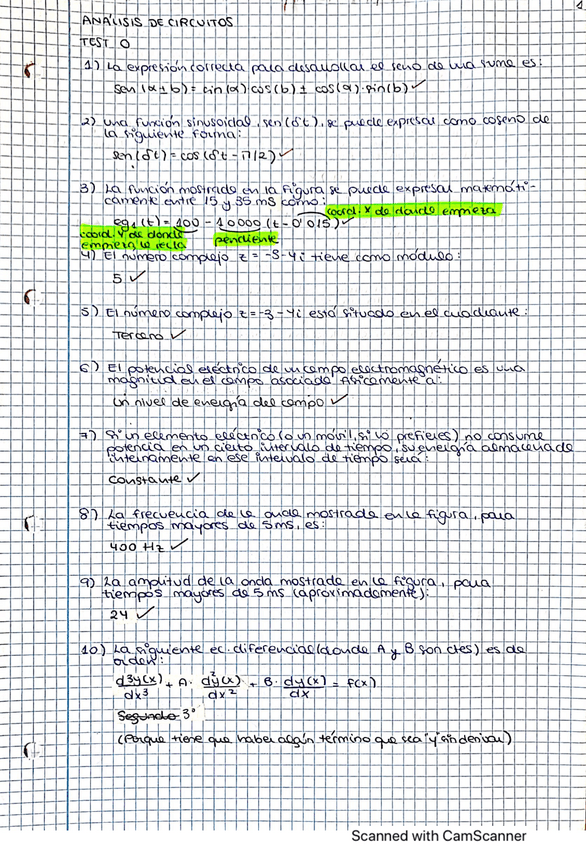 1
ANÁLISIS DE CIRCUITOS
TEST 0
1) La expresión correcta para desarrollar el seno de una suma es:
sen(a±b) = sin(a)·cos(b) ± cos(a)·sin(b) ✓
2) Una función sinusoidal, sen(δt), se puede expresar como coseno de
la siguiente forma:
sen(δt) = cos(δt - π/2) ✓
3) La función mostrada en la figura se puede expresar matemáti-
camente entre 15 y 35 ms como:
coord. x de donde empieza
eg₁(t) = 100 - 10000(t - 0'015) ✓
coord. Y de donde
empieza la recta
pendiente
4) El número complejo z = -3-4i tiene como módulo:
5 ✓
5) El número complejo z = -3-4i está situado en el cuadrante:
Tercero ✓
6) El potencial eléctrico de un campo electromagnético es una
magnitud en el campo asociada físicamente a:
Un nivel de energía del campo ✓
7) Si un elemento eléctrico (o un móvil, si lo prefieres) no consume
potencia en un cierto intervalo de tiempo, su energía almacenada
internamente en ese intervalo de tiempo será:
Constante ✓
8) La frecuencia de la onda mostrada en la figura, para
tiempos mayores de 5ms, es:
400 Hz ✓
9) La amplitud de la onda mostrada en la figura, para
tiempos mayores de 5 ms (aproximadamente):
24 ✓
10) La siguiente ec. diferencial (donde A y B son ctes) es de
orden:
d3y(x)/dx³ + A · d²y(x)/dx² + B · dy(x)/dx = f(x)
Segundo 3°
(Porque tiene que haber algún término que sea "y" sin derivar)
Scanned with CamScanner